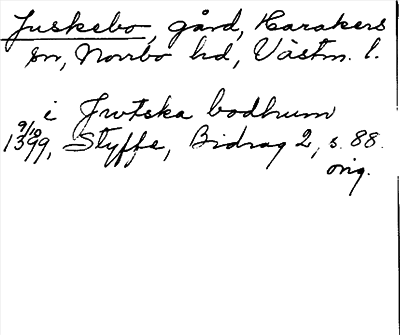 Juskebo, gård, Harakers
sn, Norrbo hd, Västm. l.
i Jwtska bodhum
9/10
1399, Styffe, Bidrag 2, s. 88.
orig.